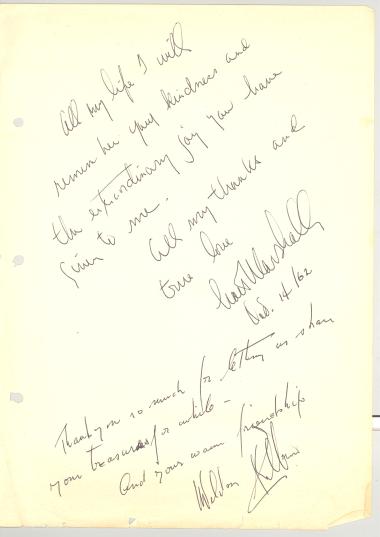 All my life I will
remember your kindness and
the extraordinary joy you have
given to me.
All my thanks and
true love
Marshall
14/62
Thank you so much for letting us share
your treasures for awhile -
And your warm friendship
Weldon Kilburn